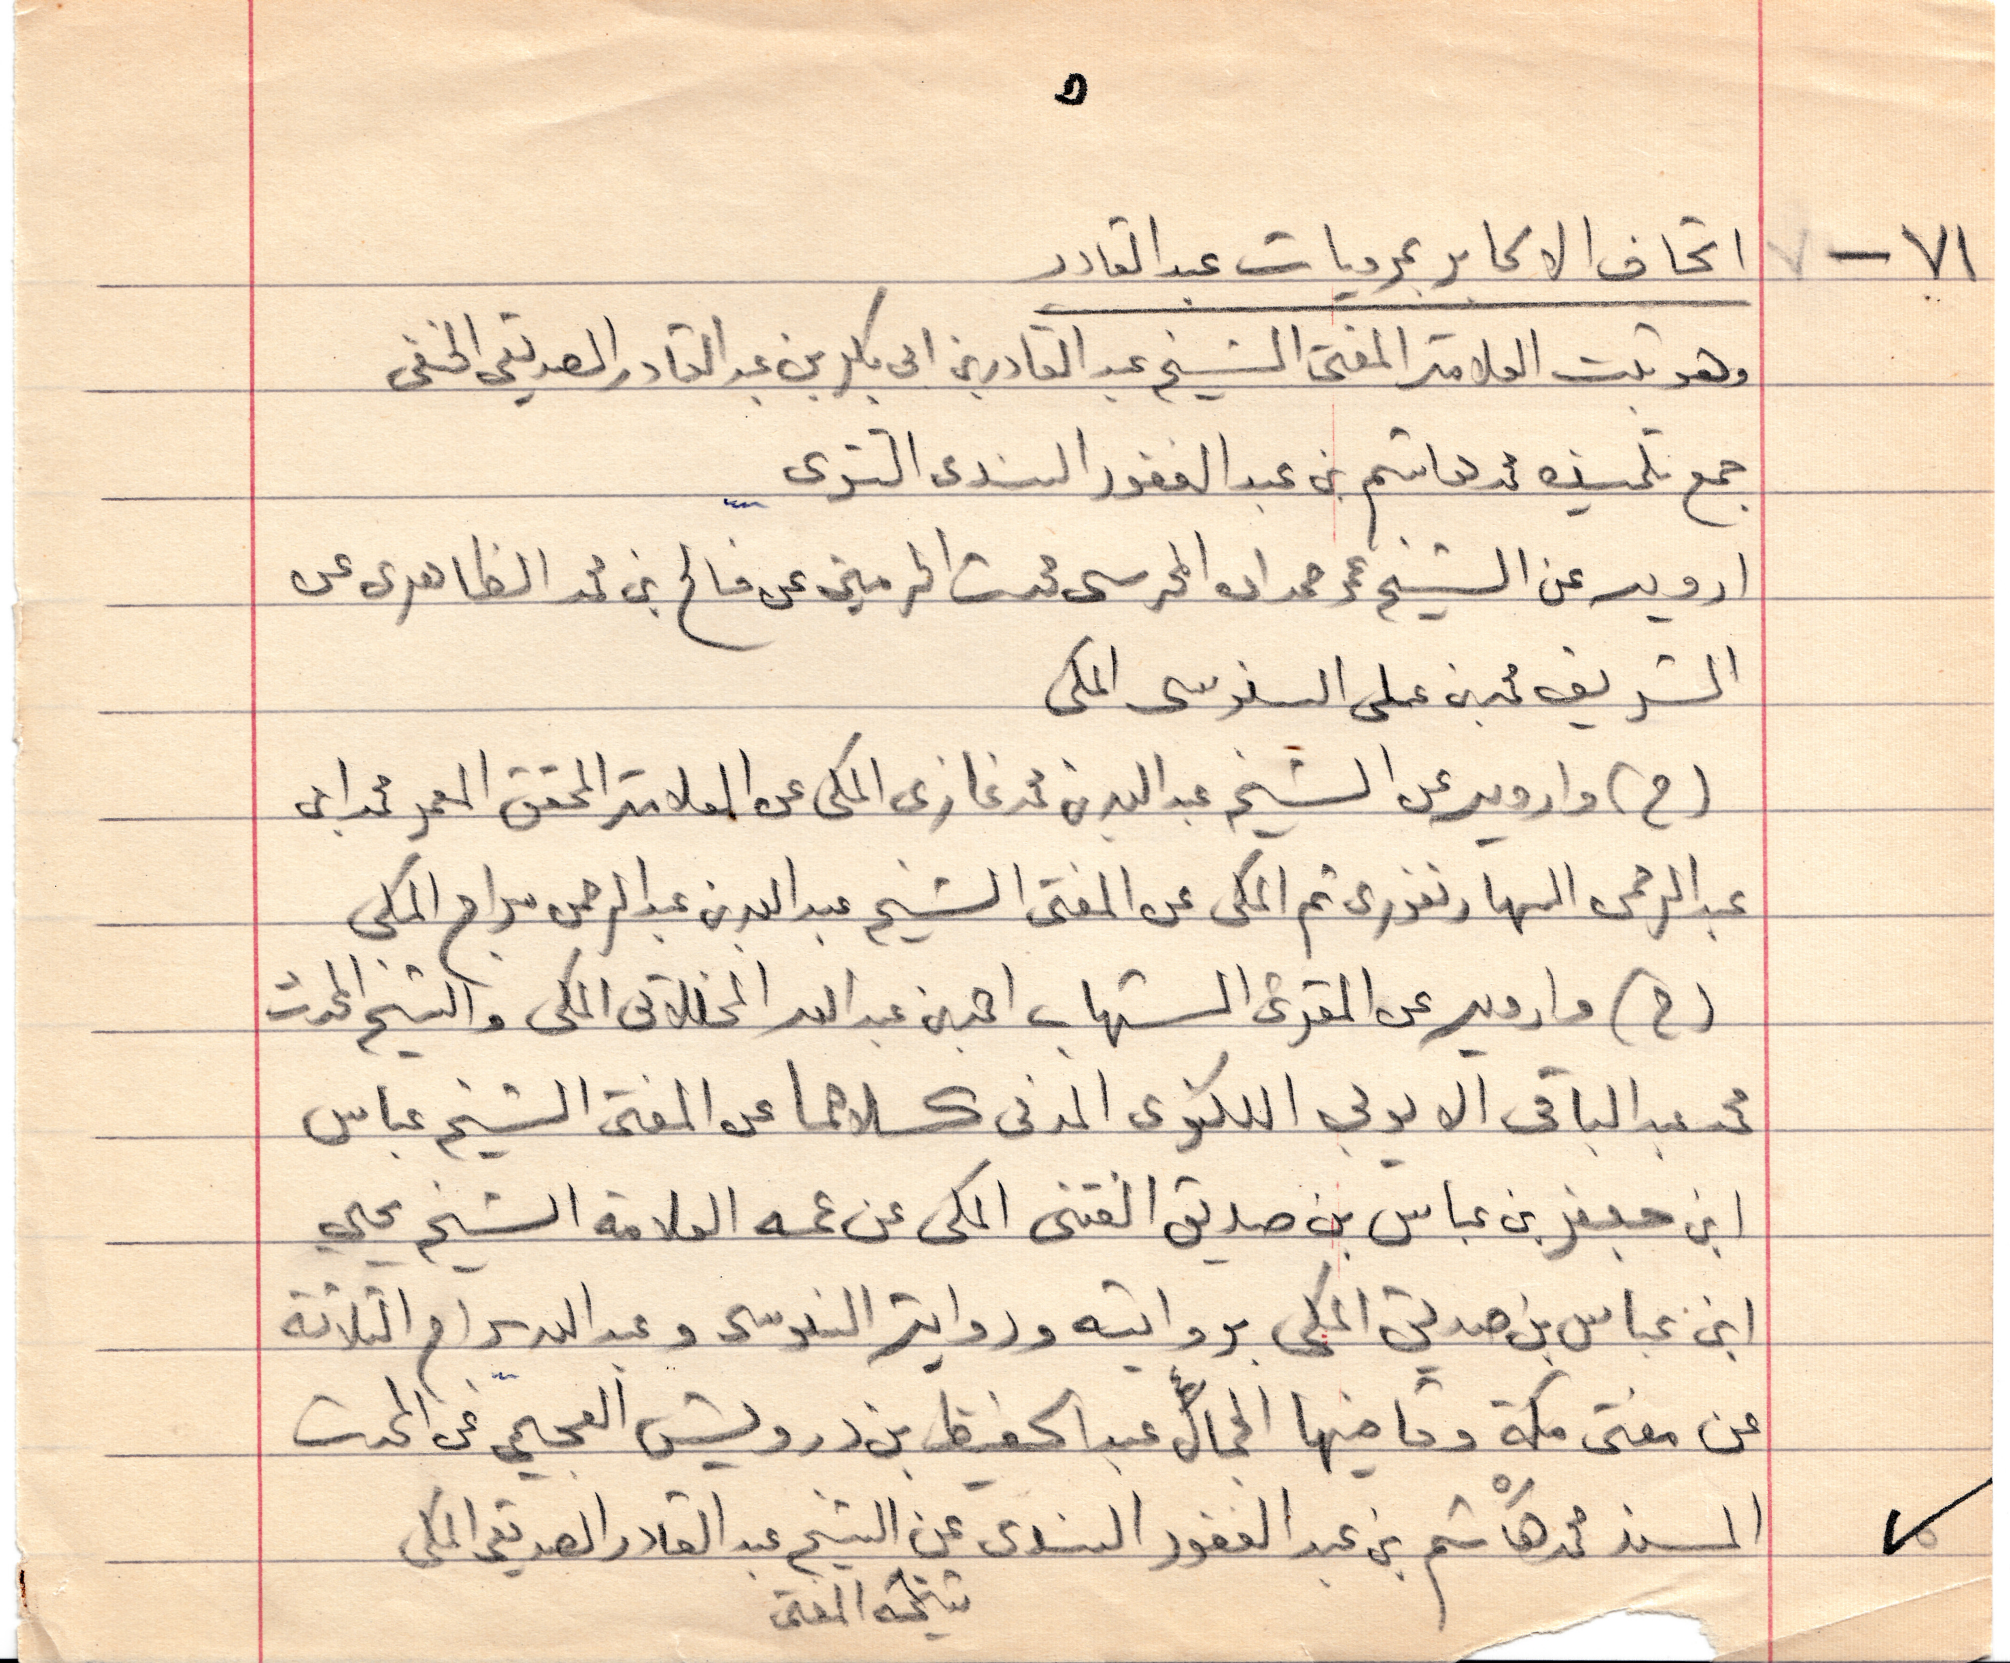 ٥
٧١ — اتحاف الاكابر بمرويات عبد القادر
وهو ثبت العلامة المفتى الشيخ عبد القادر بن ابى بكر بن عبد القادر الصديقى الحنفى
جمع تلميذه محمد هاشم بن عبد الغفور السندى التتوى
ارويه عن الشيخ عمر حمدان المحرسى محدث الحرمين عن فالح بن محمد الظاهرى عن
الشريف محمد بن على السنوسى المكى
(ح) وارويه عن الشيخ عبد الله بن محمد غازى المكى عن العلامة المحقق المعمر محمد ابى
عبد الرحمن السهارنفورى ثم المكى عن المفتى الشيخ عبد الله بن عبد الرحمن سراج المكى
(ح) وارويه عن المقرئ الشهاب احمد بن عبد الله المخللاتى المكى والشيخ المحدث
محمد عبد الباقى الايوبي اللكنوى المدنى كلاهما عن المفتى الشيخ عباس
ابن جعفر بن عباس بن صديق الفتنى المكى عن عمه العلامة الشيخ يحيي
ابن عباس بن صديق المكى بروايته ورواية السنوسى وعبد الله سراج الثلاثة
عن مفتى مكة وقاضيها الجمال عبد الحفيظ بن درويش العجيمي عن المحدث
المسند محمد هاشم بن عبد الغفور السندى عن الشيخ عبد القادر الصديقى المكى
شيخه المفتى